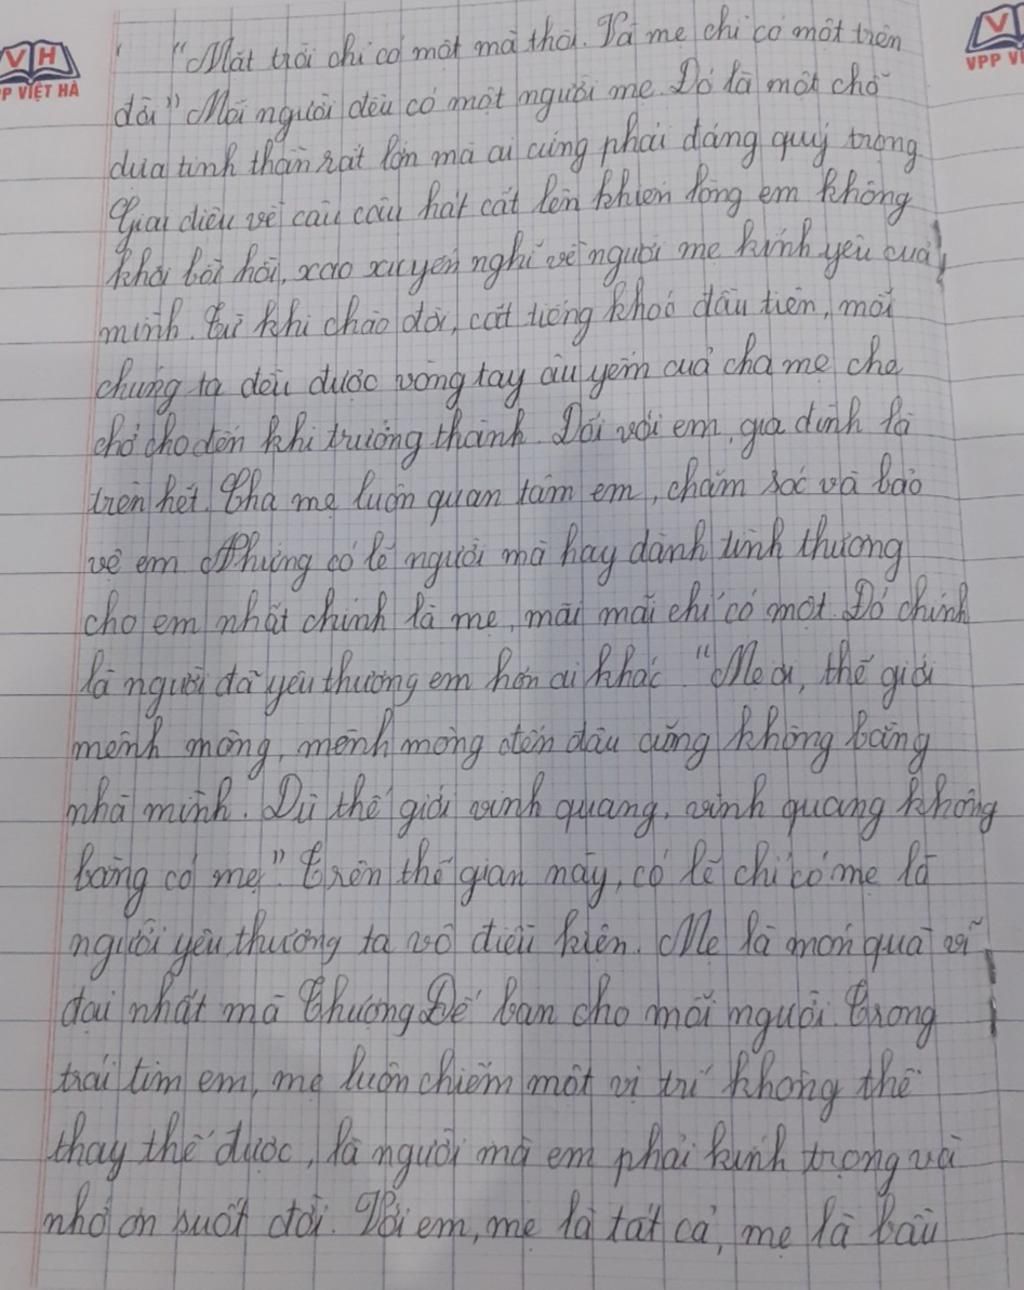 VH
P VIỆT HÀ
VPP VI
"Mặt trời chỉ có một mà thôi. Và mẹ chỉ có một trên
đời" Mỗi người đều có một người mẹ. Đó là một chỗ
dựa tinh thần rất lớn mà ai cũng phải đáng quý trọng
Giai điệu về câu câu hát cất lên khiến lòng em không
khỏi bồi hồi, xao xuyến nghĩ về người mẹ kính yêu của
mình. Từ khi chào đời, cất tiếng khóc đầu tiên, mỗi
chúng ta đều được vòng tay âu yếm của cha mẹ che
chở cho đến khi trưởng thành. Đối với em, gia đình là
trên hết. Cha mẹ luôn quan tâm em, chăm sóc và bảo
vệ em. Nhưng có lẽ người mà hay dành tình thương
cho em nhất chính là mẹ, mãi mãi chỉ có một. Đó chính
là người đã yêu thương em hơn ai khác "Mẹ ơi, thế giới
mênh mông, mênh mông đến đâu cũng không bằng
nhà mình. Dù thế giới vinh quang, vinh quang không
bằng có mẹ". Trên thế gian này, có lẽ chỉ có mẹ là
người yêu thương ta vô điều kiện. Mẹ là món quà vĩ
đại nhất mà Thượng Đế ban cho mỗi người. Trong
trái tim em, mẹ luôn chiếm một vị trí không thể
thay thế được, là người mà em phải kính trọng và
nhớ ơn suốt đời. Với em, mẹ là tất cả, mẹ là bầu